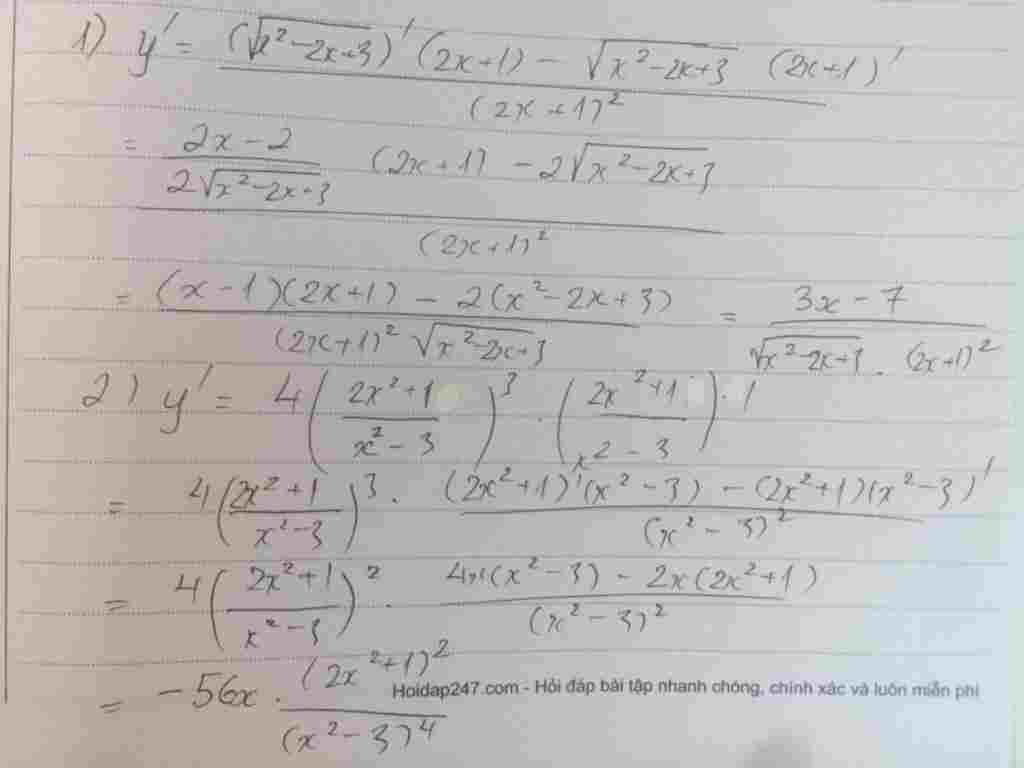 1) y' = ((√(x²-2x+3))' (2x+1) - √(x²-2x+3) (2x+1)') / (2x+1)²
= ((2x-2)/(2√(x²-2x+3)) (2x+1) - 2√(x²-2x+3)) / (2x+1)²
= ((x-1)(2x+1) - 2(x²-2x+3)) / ((2x+1)² √(x²-2x+3)) = (3x-7) / (√(x²-2x+3) . (2x+1)²)
2) y' = 4((2x²+1)/(x²-3))³ . ((2x²+1)/(x²-3))'
= 4((2x²+1)/(x²-3))³ . ((2x²+1)'(x²-3) - (2x²+1)(x²-3)') / (x²-3)²
= 4((2x²+1)/(x²-3))² . (4x(x²-3) - 2x(2x²+1)) / (x²-3)²
= -56x . (2x²+1)² / (x²-3)⁴
Hoidap247.com - Hỏi đáp bài tập nhanh chóng, chính xác và luôn miễn phí